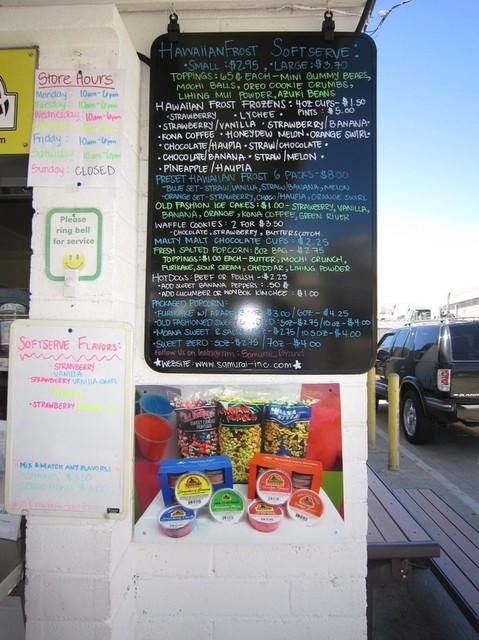 Store Hours
Monday: 10am-6pm
Tuesday: 10am-6pm
Wednesday: 10am-6pm
Friday: 10am-6pm
Saturday: 10am-6pm
Sunday: CLOSED
Please
ring bell
for service
SOFTSERVE FLAVORS:
STRAWBERRY
VANILLA
STRAWBERRY VANILLA SWIRL
STRAWBERRY
MIX & MATCH ANY FLAVORS!
HAWAIIANFROST SOFTSERVE:
• SMALL: $2.95 • LARGE: $3.70
TOPPINGS: 65¢ EACH - MINI GUMMY BEARS,
MOCHI BALLS, OREO COOKIE CRUMBS,
LIHING MUI POWDER, AZUKI BEANS
HAWAIIAN FROST FROZENS: 4OZ CUPS - $1.50
• STRAWBERRY • LYCHEE • PINTS: $5.00
• STRAWBERRY/VANILLA • STRAWBERRY/BANANA
• KONA COFFEE • HONEYDEW MELON • ORANGE SWIRL
• CHOCOLATE/HAUPIA • STRAW/CHOCOLATE
• CHOCOLATE/BANANA • STRAW/MELON
• PINEAPPLE/HAUPIA
PRESET HAWAIIAN FROST 6 PACKS - $8.00
- BLUE SET - STRAW/VANILLA, STRAW/BANANA, MELON
- ORANGE SET - STRAW/CHOCO, CHOCO/HAUPIA, ORANGE SWIRL
OLD FASHION ICE CAKES: $1.00 - STRAWBERRY, VANILLA,
BANANA, ORANGE, KONA COFFEE, GREEN RIVER
WAFFLE COOKIES: 2 FOR $3.50
- CHOCOLATE, STRAWBERRY, BUTTERSCOTCH
MALTY MALT CHOCOLATE CUPS: $2.25
FRESH SALTED POPCORN: 5OZ BAG - $2.75
TOPPINGS: $1.00 EACH - BUTTER, MOCHI CRUNCH,
FURIKAKE, SOUR CREAM, CHEDDAR, LIHING POWDER
HOTDOGS: BEEF OR POLISH - $2.25
• ADD SWEET BANANA PEPPERS: .50¢
• ADD CUCUMBER OR WONBOK KIMCHEE: $1.00
PACKAGED POPCORN:
• FURIKAKE W/ $3.00 / 6OZ - $4.25
• OLD FASHIONED 5OZ - $2.75 / 10OZ - $4.00
• MOANA SWEET & $2.75 / 10.5OZ - $4.00
• SWEET ZERO: 5OZ - $2.75 / 7OZ - $4.00
Follow us on Instagram - Samurai_Brand
WEBSITE: www.samurai-inc.com